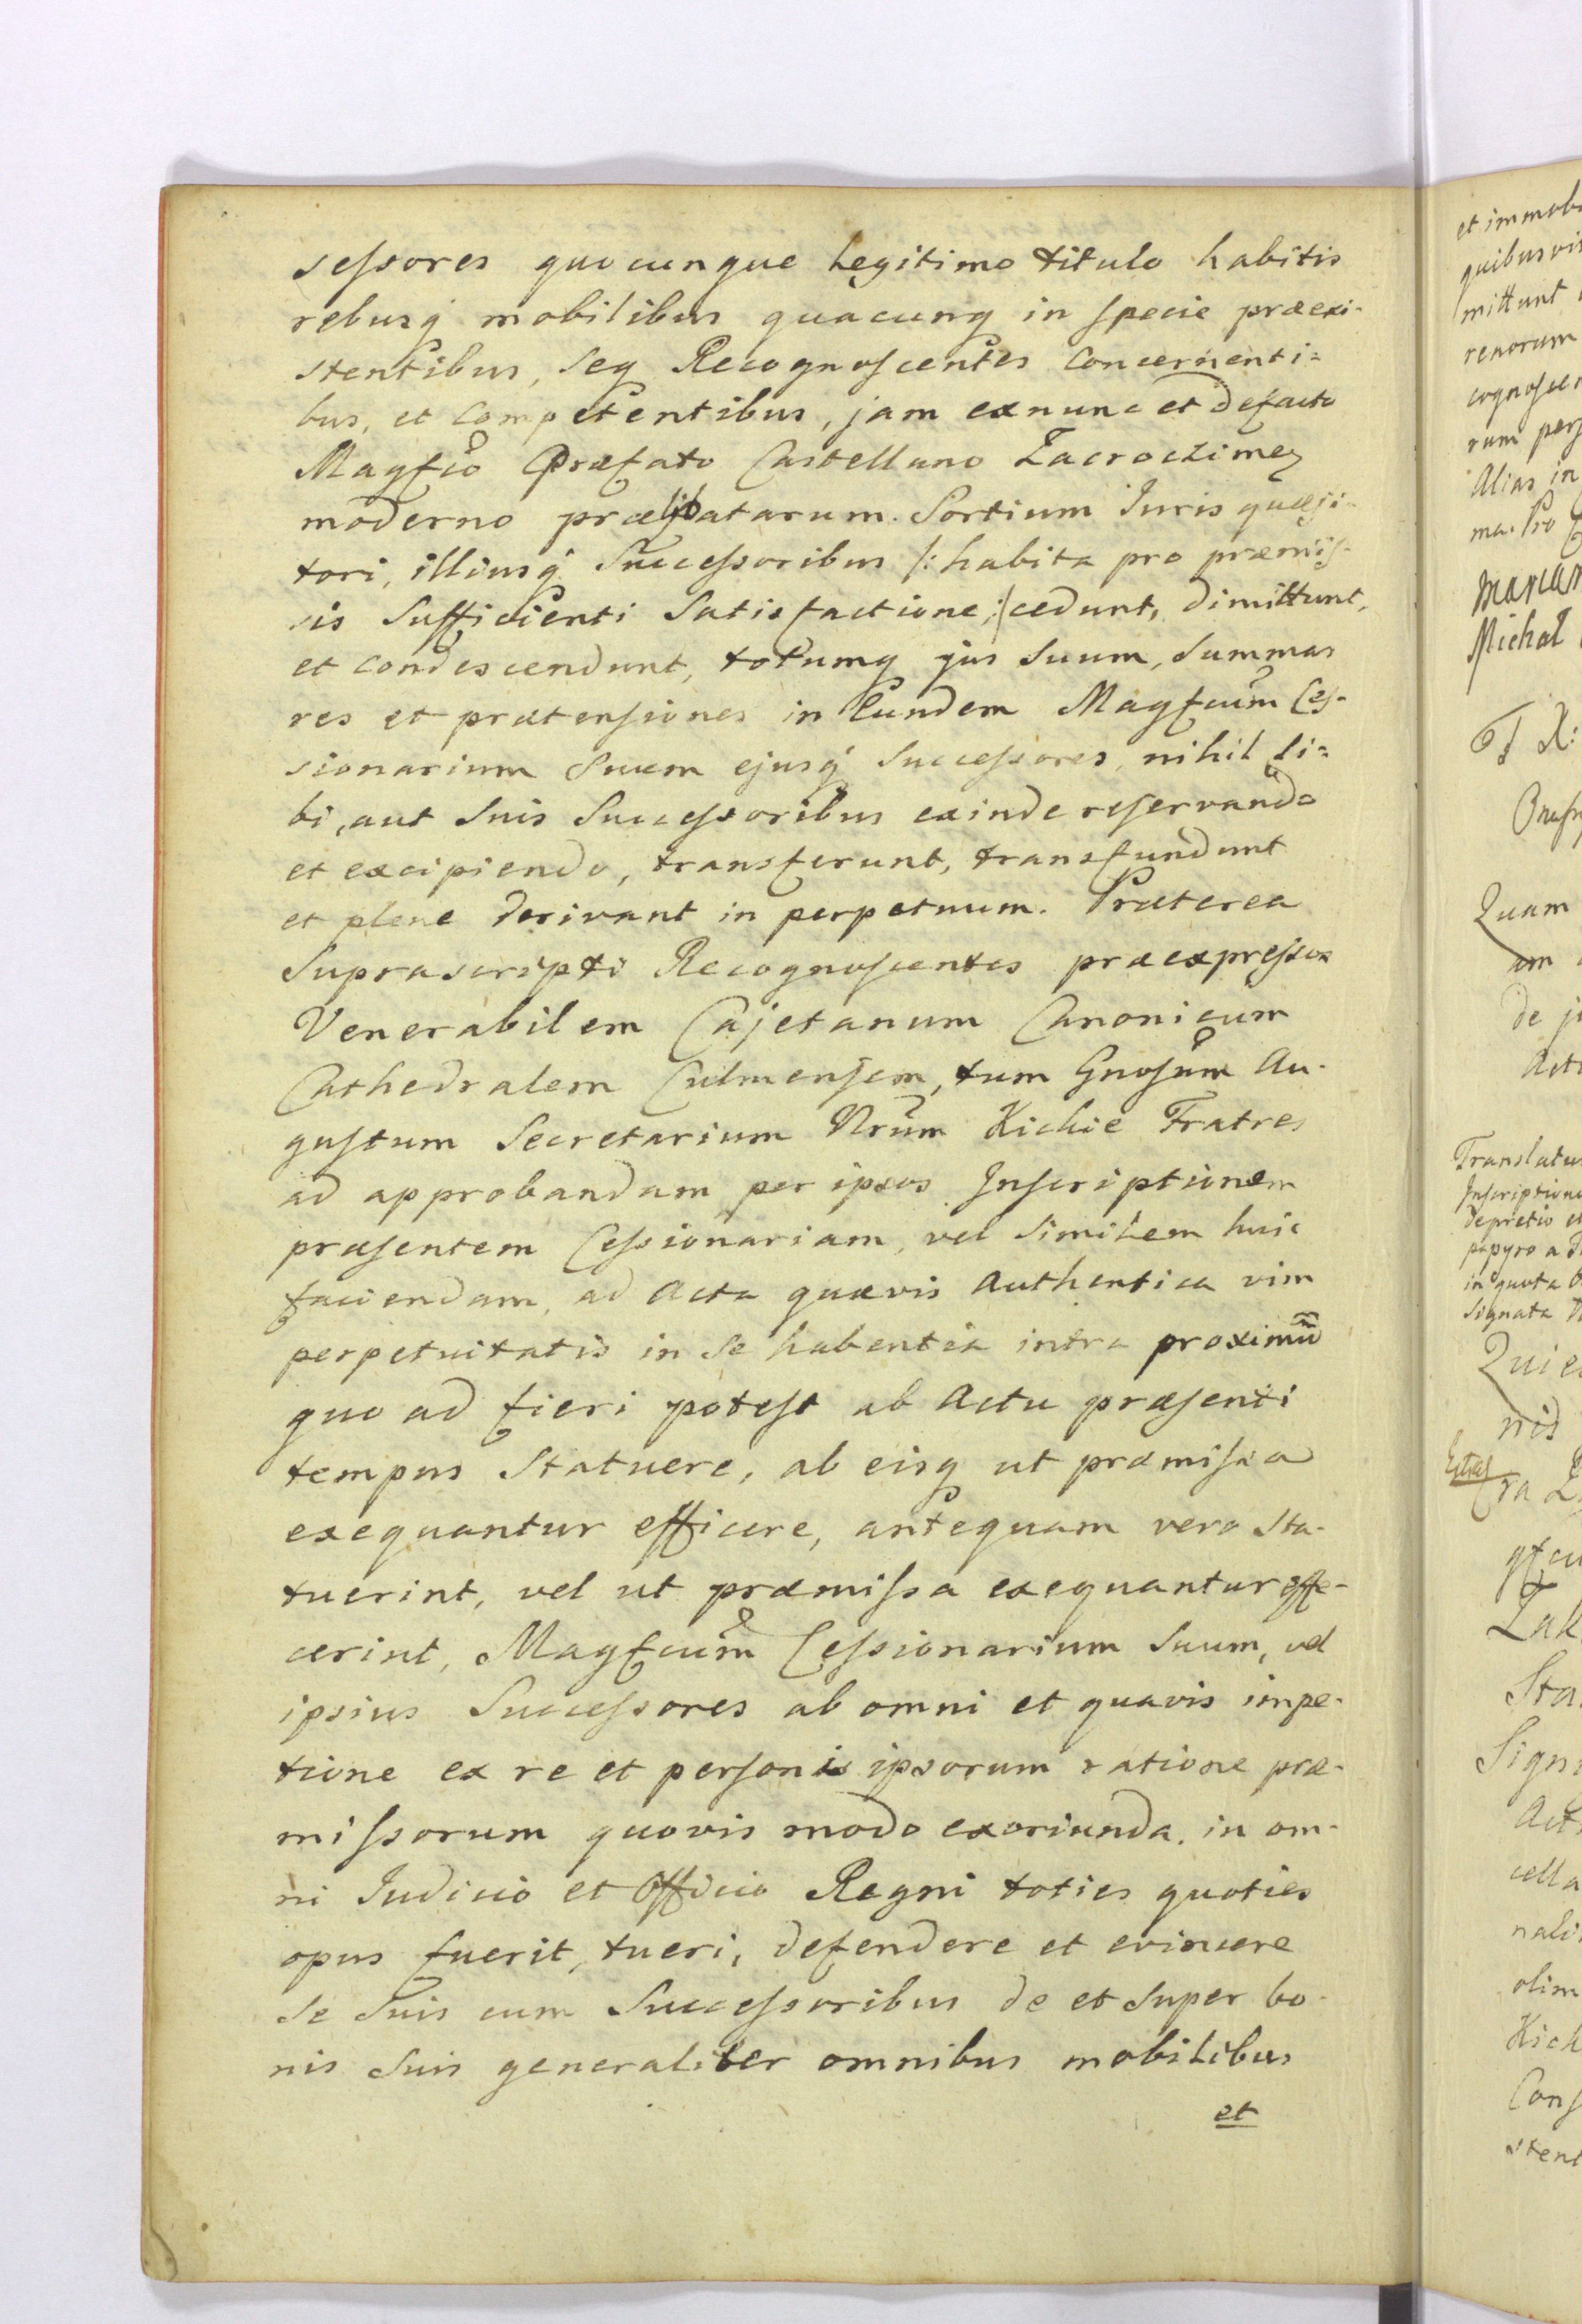 sessores quocunque legitimo titulo habitis
rebusq mobilibus quacunq in specie præexi-
stentibus, seq Recognoscentes concernenti=
bus, et competentibus, jam exnunc et defacto
Magfco Præfato Castellano Zacroczimeñ
moderno prælibatarum Sortium Juris quæsi-
tori, illiusq Successoribus /: habita pro præmis-
sis sufficienti satisfactione :/ cedunt, dimittunt,
et condescendunt, totumq jus suum, summas
res et prætensiones in Eundem Magfcum Ces-
sionarium Suum ejusq Successores, nihil si=
bi, aut suis Successoribus exinde reservando
et excipiendo, transferunt, transfundunt
et plene derivant in perpetuum. Præterea
Suprascripti Recognoscentes præexpressos
Venerabilem Cajetanum Canonicum
Cathedralem Culmensem, tum Gnosum Au-
gustum Secretarium Nrum Kickie Fratres
ad approbandam per ipsos Inscriptionem
præsentem Cessionariam, vel similem huic
faciendam, ad Acta quævis Authentica vim
perpetuitatis in se habentia intra proximū
quo ad fieri potest ab Actu præsenti
tempus statuere, ab eisq ut præmissa
exequantur efficere, antequam vero sta-
tuerint, vel ut præmissa exequantur effe-
cerint, Magfcum Cessionarium Suum, vel
ipsius Successores ab omni et quavis impe-
tione ex re et personis ipsorum ratione præ-
missorum quovis modo exoriunda, in om-
ni Judicio et Officio Regni toties quoties
opus fuerit, tueri, defendere et evincere
se suis cum Successoribus de et super bo-
nis suis generaliter omnibus mobilibus
et
et immob
quibusvi
mittunt
renorum
cognoscen
rum per
Alias in
ma. Pro
Marcan
Michał
Quam
am
de j
Act
Translatu
Inscription
depretio et
papyro a
in quota
Signata
Qui e
nis
ra
Zak
Sta
Sign
Act
cella
nali
olim
Kick
Cons
stent